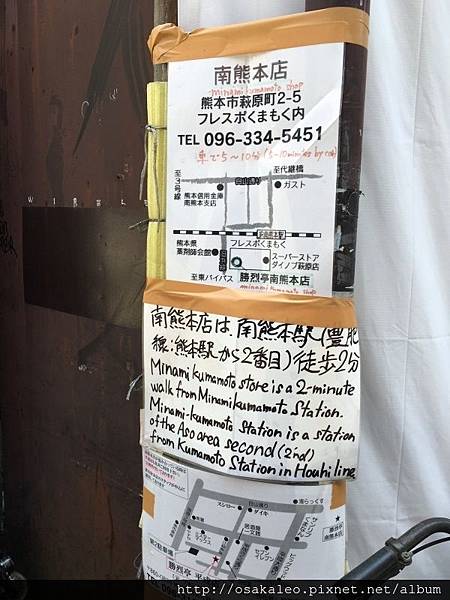 南熊本店
minami kumamoto shop
熊本市萩原町2-5
フレスポくまもく内
TEL 096-334-5451
車で5~10分(5-10minies by car)
至3号線
至代継橋
白山通り
熊本信用金庫
南熊本支店
ガスト
熊本県
薬剤師会館
フレスポくまもく
スーパーストア
ダイノブ萩原店
至東バイパス
勝烈亭南熊本店
minami kumamoto shop
南熊本店は、南熊本駅(豊肥
線:熊本駅から2番目)徒歩2分
Minami kumamoto store is a 2-minute
walk from Minami kumamoto Station.
Minami-kumamoto Station is a station
of the Aso area second (2nd)
from Kumamoto Station in Houhi line.
スシロー
白山通り
ダイキ
湯らっくす
居酒屋
一文路
セブン
イレブン
第2駐車場
勝烈亭
http://osakaleo.pixnet.net/album